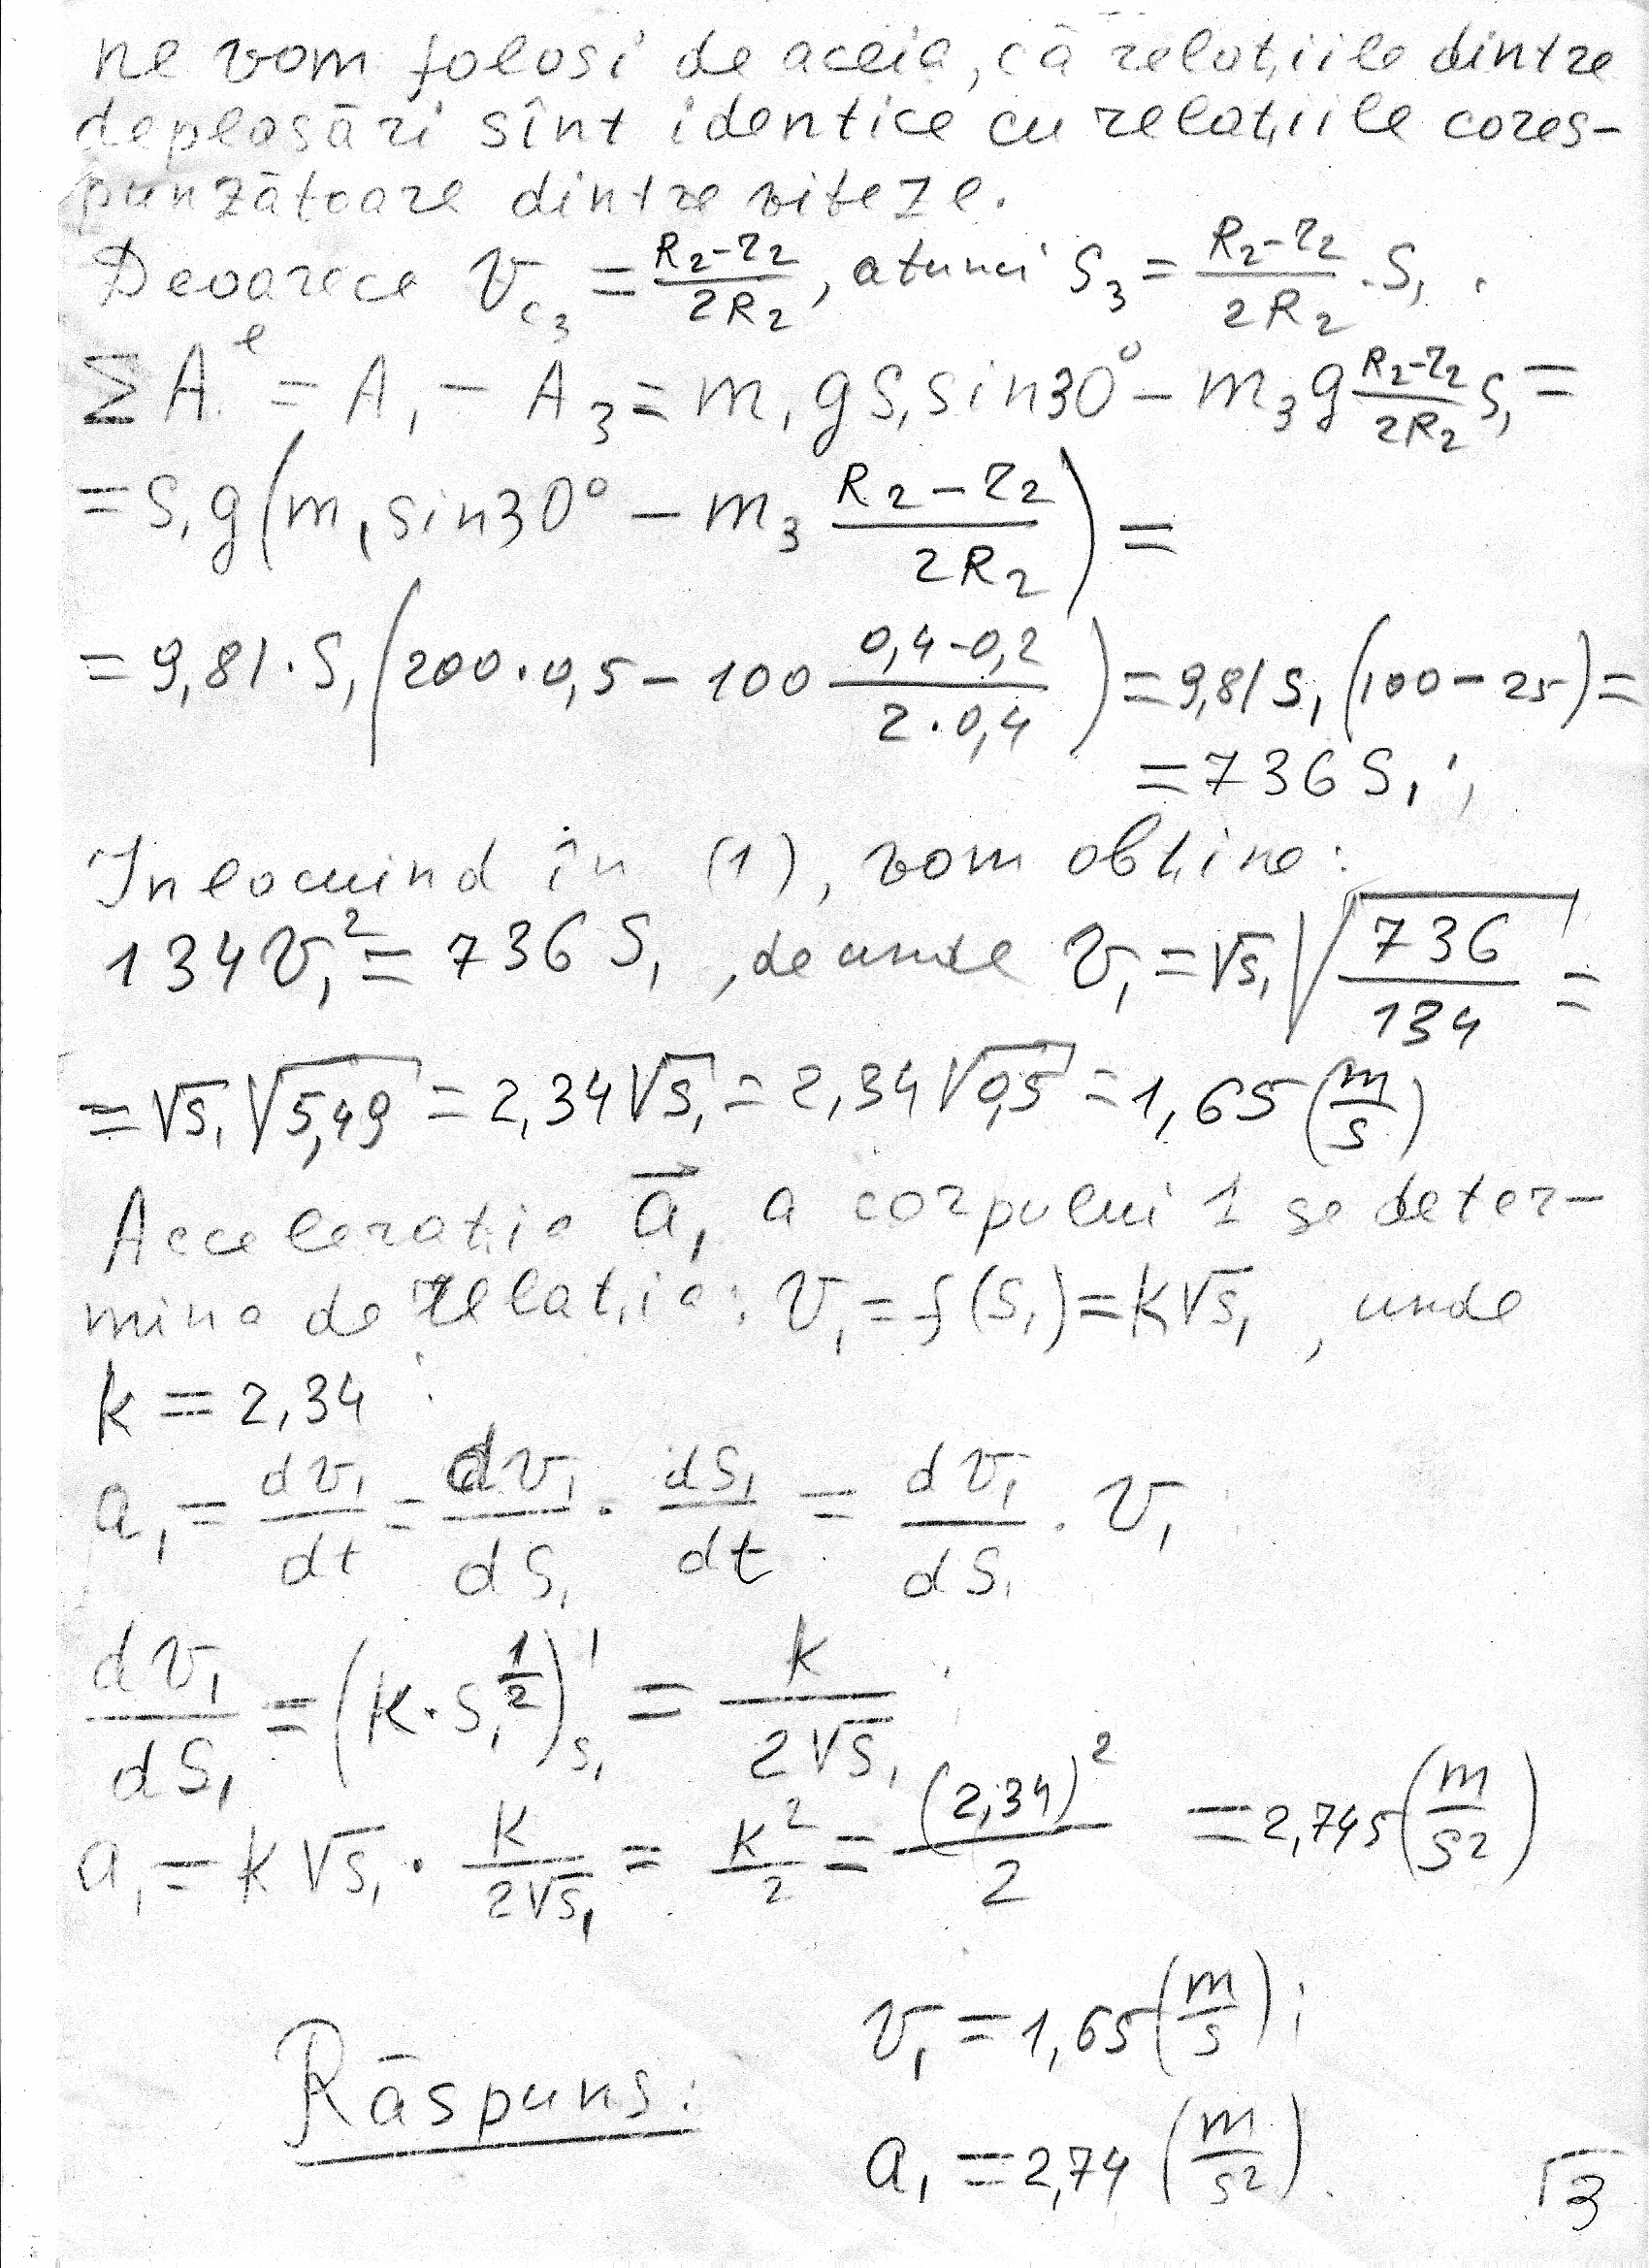 ne vom folosi de aceia, că relațiile dintre
deplasări sînt identice cu relațiile cores-
punzătoare dintre viteze.
Deoarece V_{C_3} = \frac{R_2-r_2}{2R_2}, atunci S_3 = \frac{R_2-r_2}{2R_2} \cdot S_1.
\sum A^e = A_1 - A_3 = m_1 g S_1 sin30° - m_3 g \frac{R_2-r_2}{2R_2} S_1 =
= S_1 g (m_1 sin30° - m_3 \frac{R_2-r_2}{2R_2}) =
= 9,81 \cdot S_1 (200 \cdot 0,5 - 100 \frac{0,4-0,2}{2 \cdot 0,4}) = 9,81 S_1 (100 - 25) =
= 736 S_1;
Inlocuind în (1), vom obține:
134 V_1^2 = 736 S_1, de unde V_1 = \sqrt{S_1} \sqrt{\frac{736}{134}} =
= \sqrt{S_1} \sqrt{5,49} = 2,34 \sqrt{S_1} = 2,34 \sqrt{0,5} = 1,65 (\frac{m}{s})
Acceleratia \vec{a}_1 a corpului 1 se deter-
mina de relația: V_1 = f(S_1) = k\sqrt{S_1}, unde
k = 2,34:
a_1 = \frac{dV_1}{dt} = \frac{dV_1}{dS_1} \cdot \frac{dS_1}{dt} = \frac{dV_1}{dS_1} \cdot V_1
\frac{dV_1}{dS_1} = (k \cdot S_1^{\frac{1}{2}})'_{S_1} = \frac{k}{2\sqrt{S_1}};
a_1 = k\sqrt{S_1} \cdot \frac{k}{2\sqrt{S_1}} = \frac{k^2}{2} = \frac{(2,34)^2}{2} = 2,745 (\frac{m}{s^2})
V_1 = 1,65 (\frac{m}{s});
Răspuns:
a_1 = 2,74 (\frac{m}{s^2}).
3